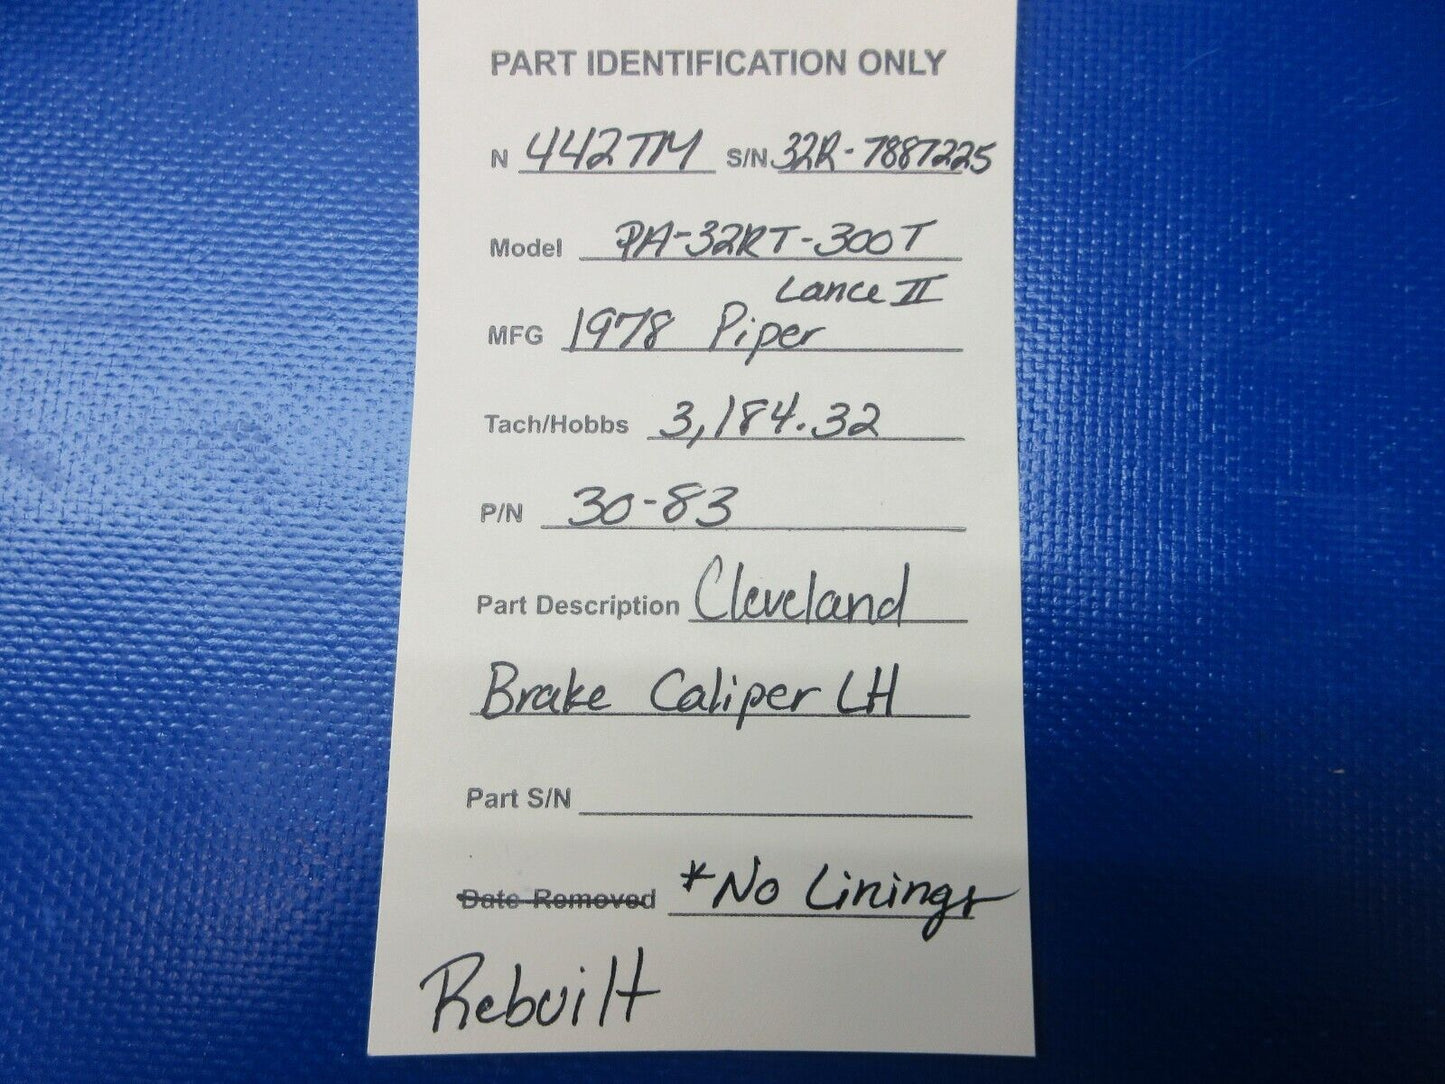 PART IDENTIFICATION ONLY
N 442TM S/N 32R-7887225
Model PA-32RT-300T
Lance II
MFG 1978 Piper
Tach/Hobbs 3,184.32
P/N 30-83
Part Description Cleveland
Brake Caliper LH
Part S/N
Date Removed *No Linings
Rebuilt